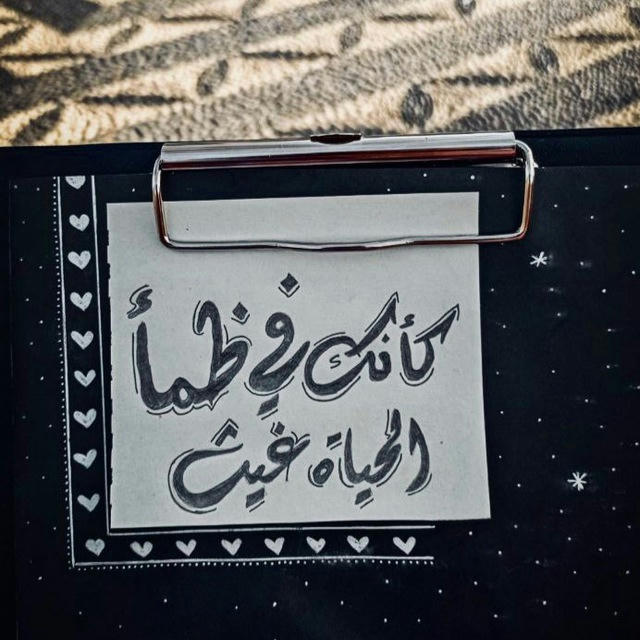 كأنك في ظمأ
الحياة غيث